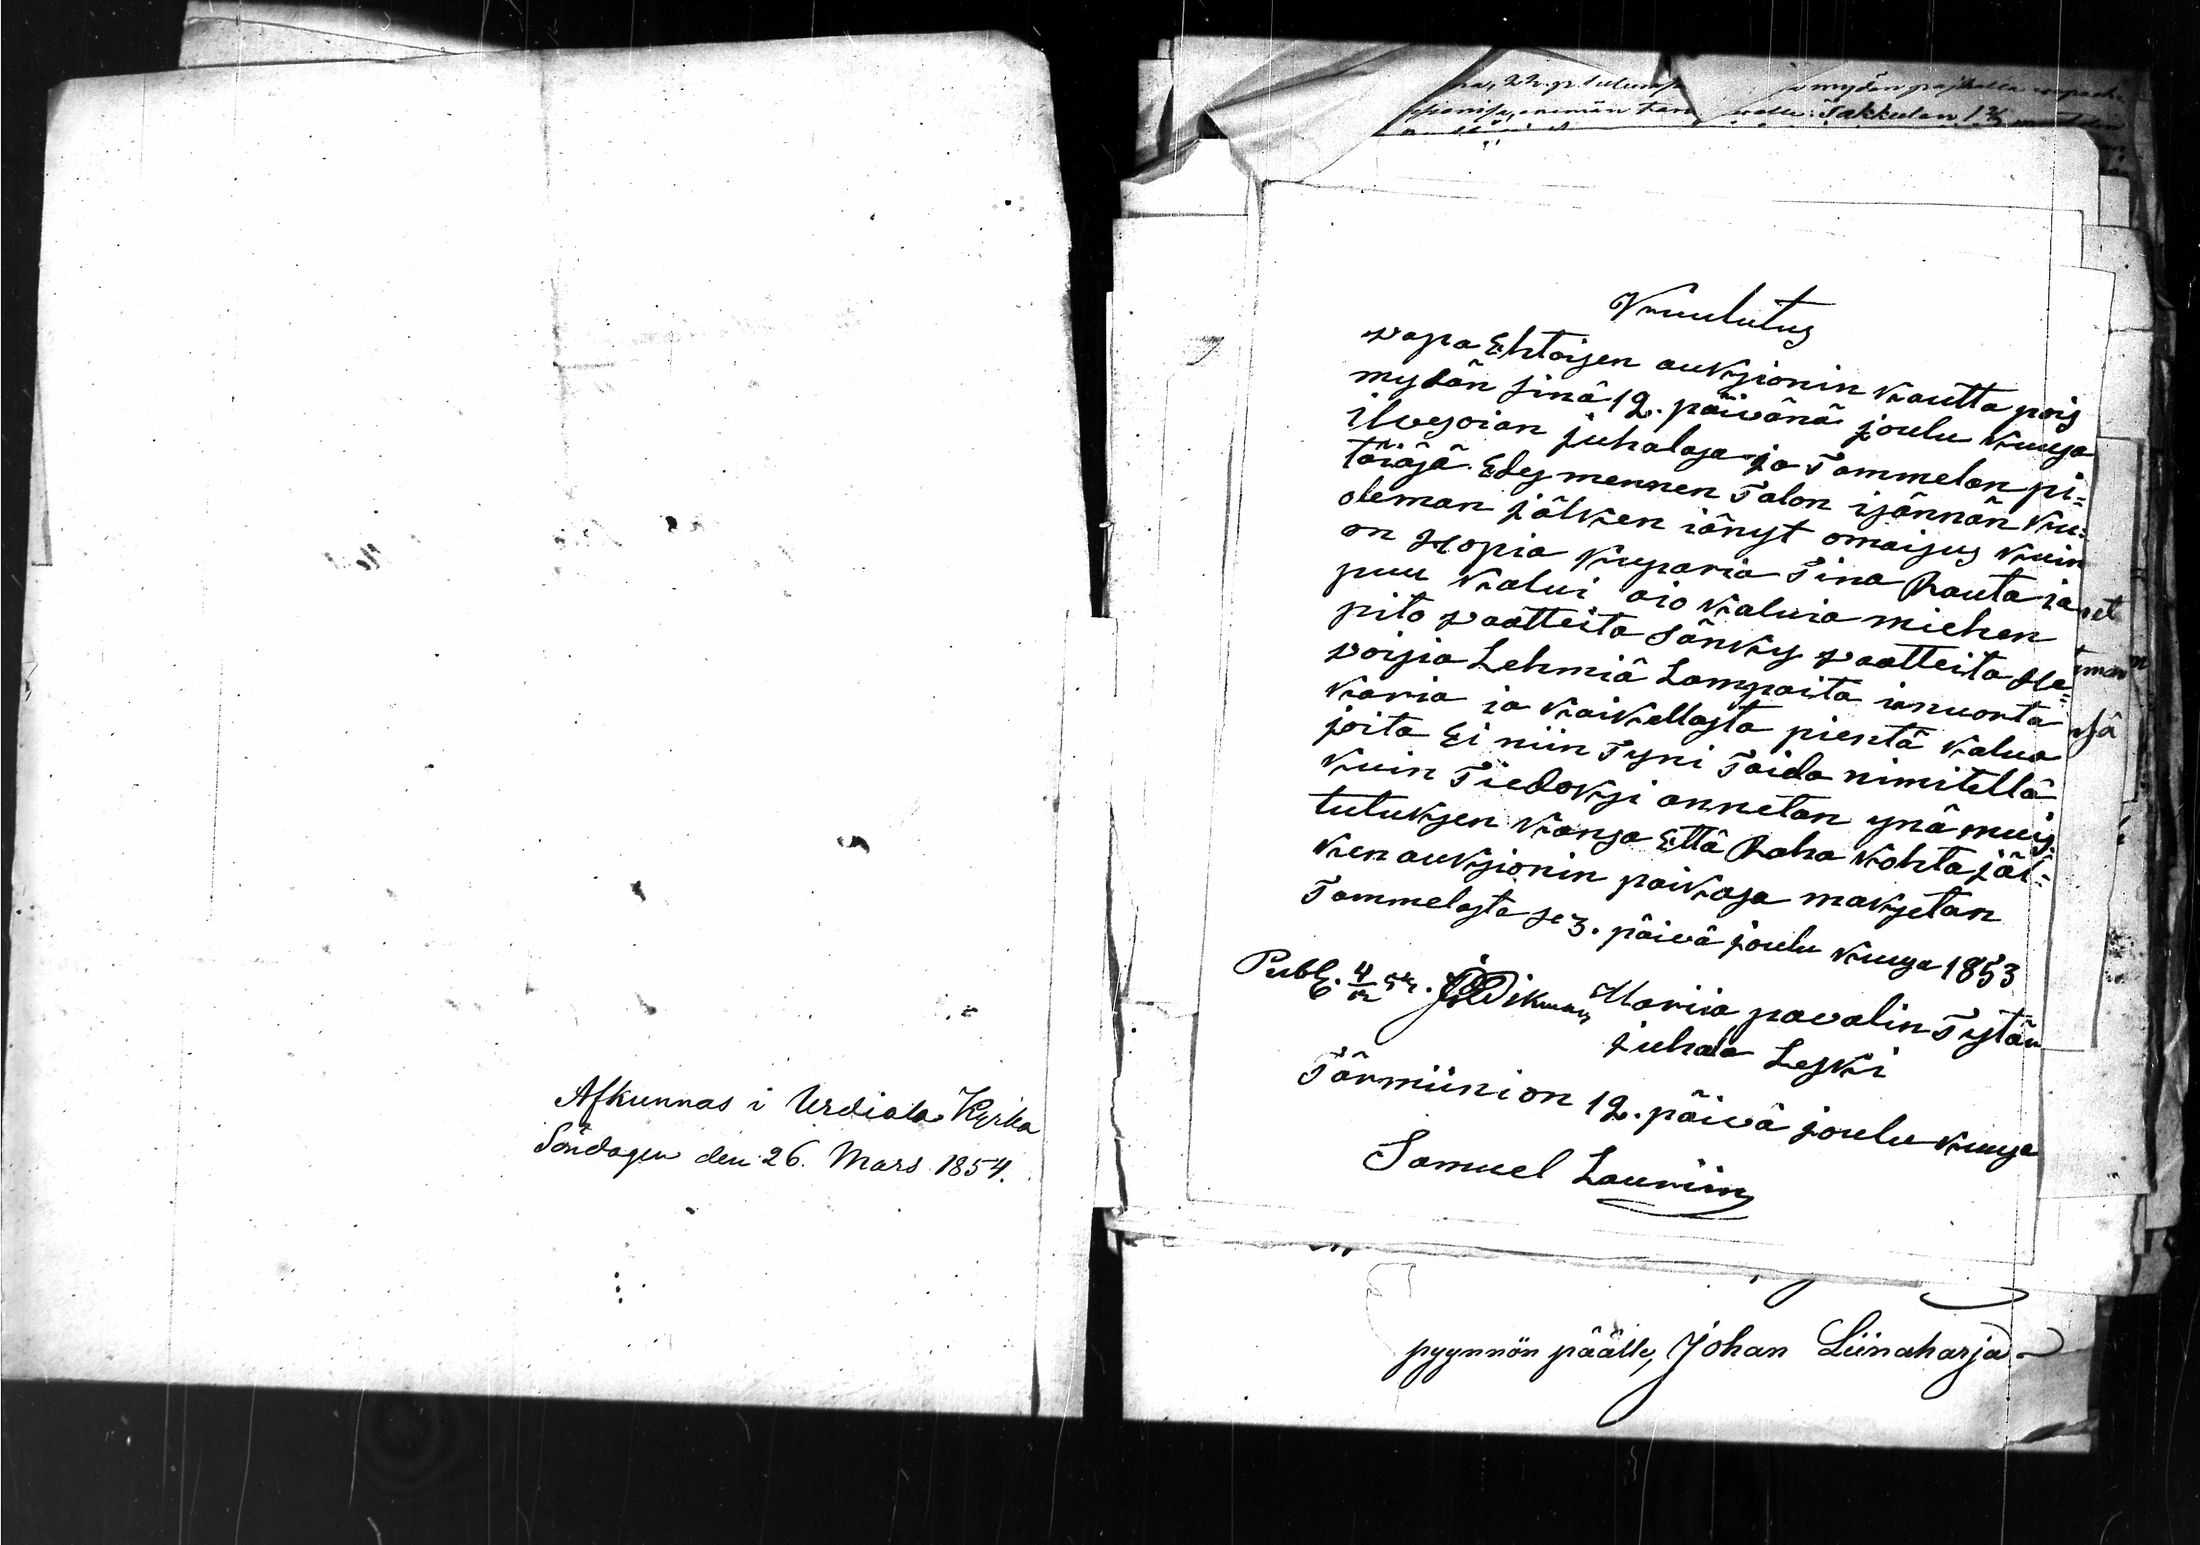 Afkunnas i Urdiala Kyrka
Söndagen den 26. Mars 1854.
mydän
Jakkulan
Kuulutus
vapa Ehtoisen auksionin kautta pois
mydän sinä 12. päivänä joulu kuusa
ilvesoian juhalasa ja Tammelan pi=
täjäsä Edes mennen Talon isännän ku=
oleman jälken jänyt omaisus kuin
on Hopia kuparia Tina Rauta ja
puu kalui aio kaluia miehen
pito vaatteita sänky vaatteita He=
voisia Lehmiä Lampaita ia nuorta
karia ia kaikellasta pientä kalua
joita Ei niin Tyni Taida nimitellä
kuin Tiedoksi annetan ynä muis=
tutuksen kansa Että Raha kohta jäl=
ken auksionin paikasa maksetan
Tammelasta se 3. päivä joulu kuusa 1853
Publ. 4/12 53. Dikman Mariia pavalin Tytär
juhala Leski
Tärmiini on 12. päivä joulu kuusa
Samuel Lauriin
pyynnön päälle, Johan Liinaharja